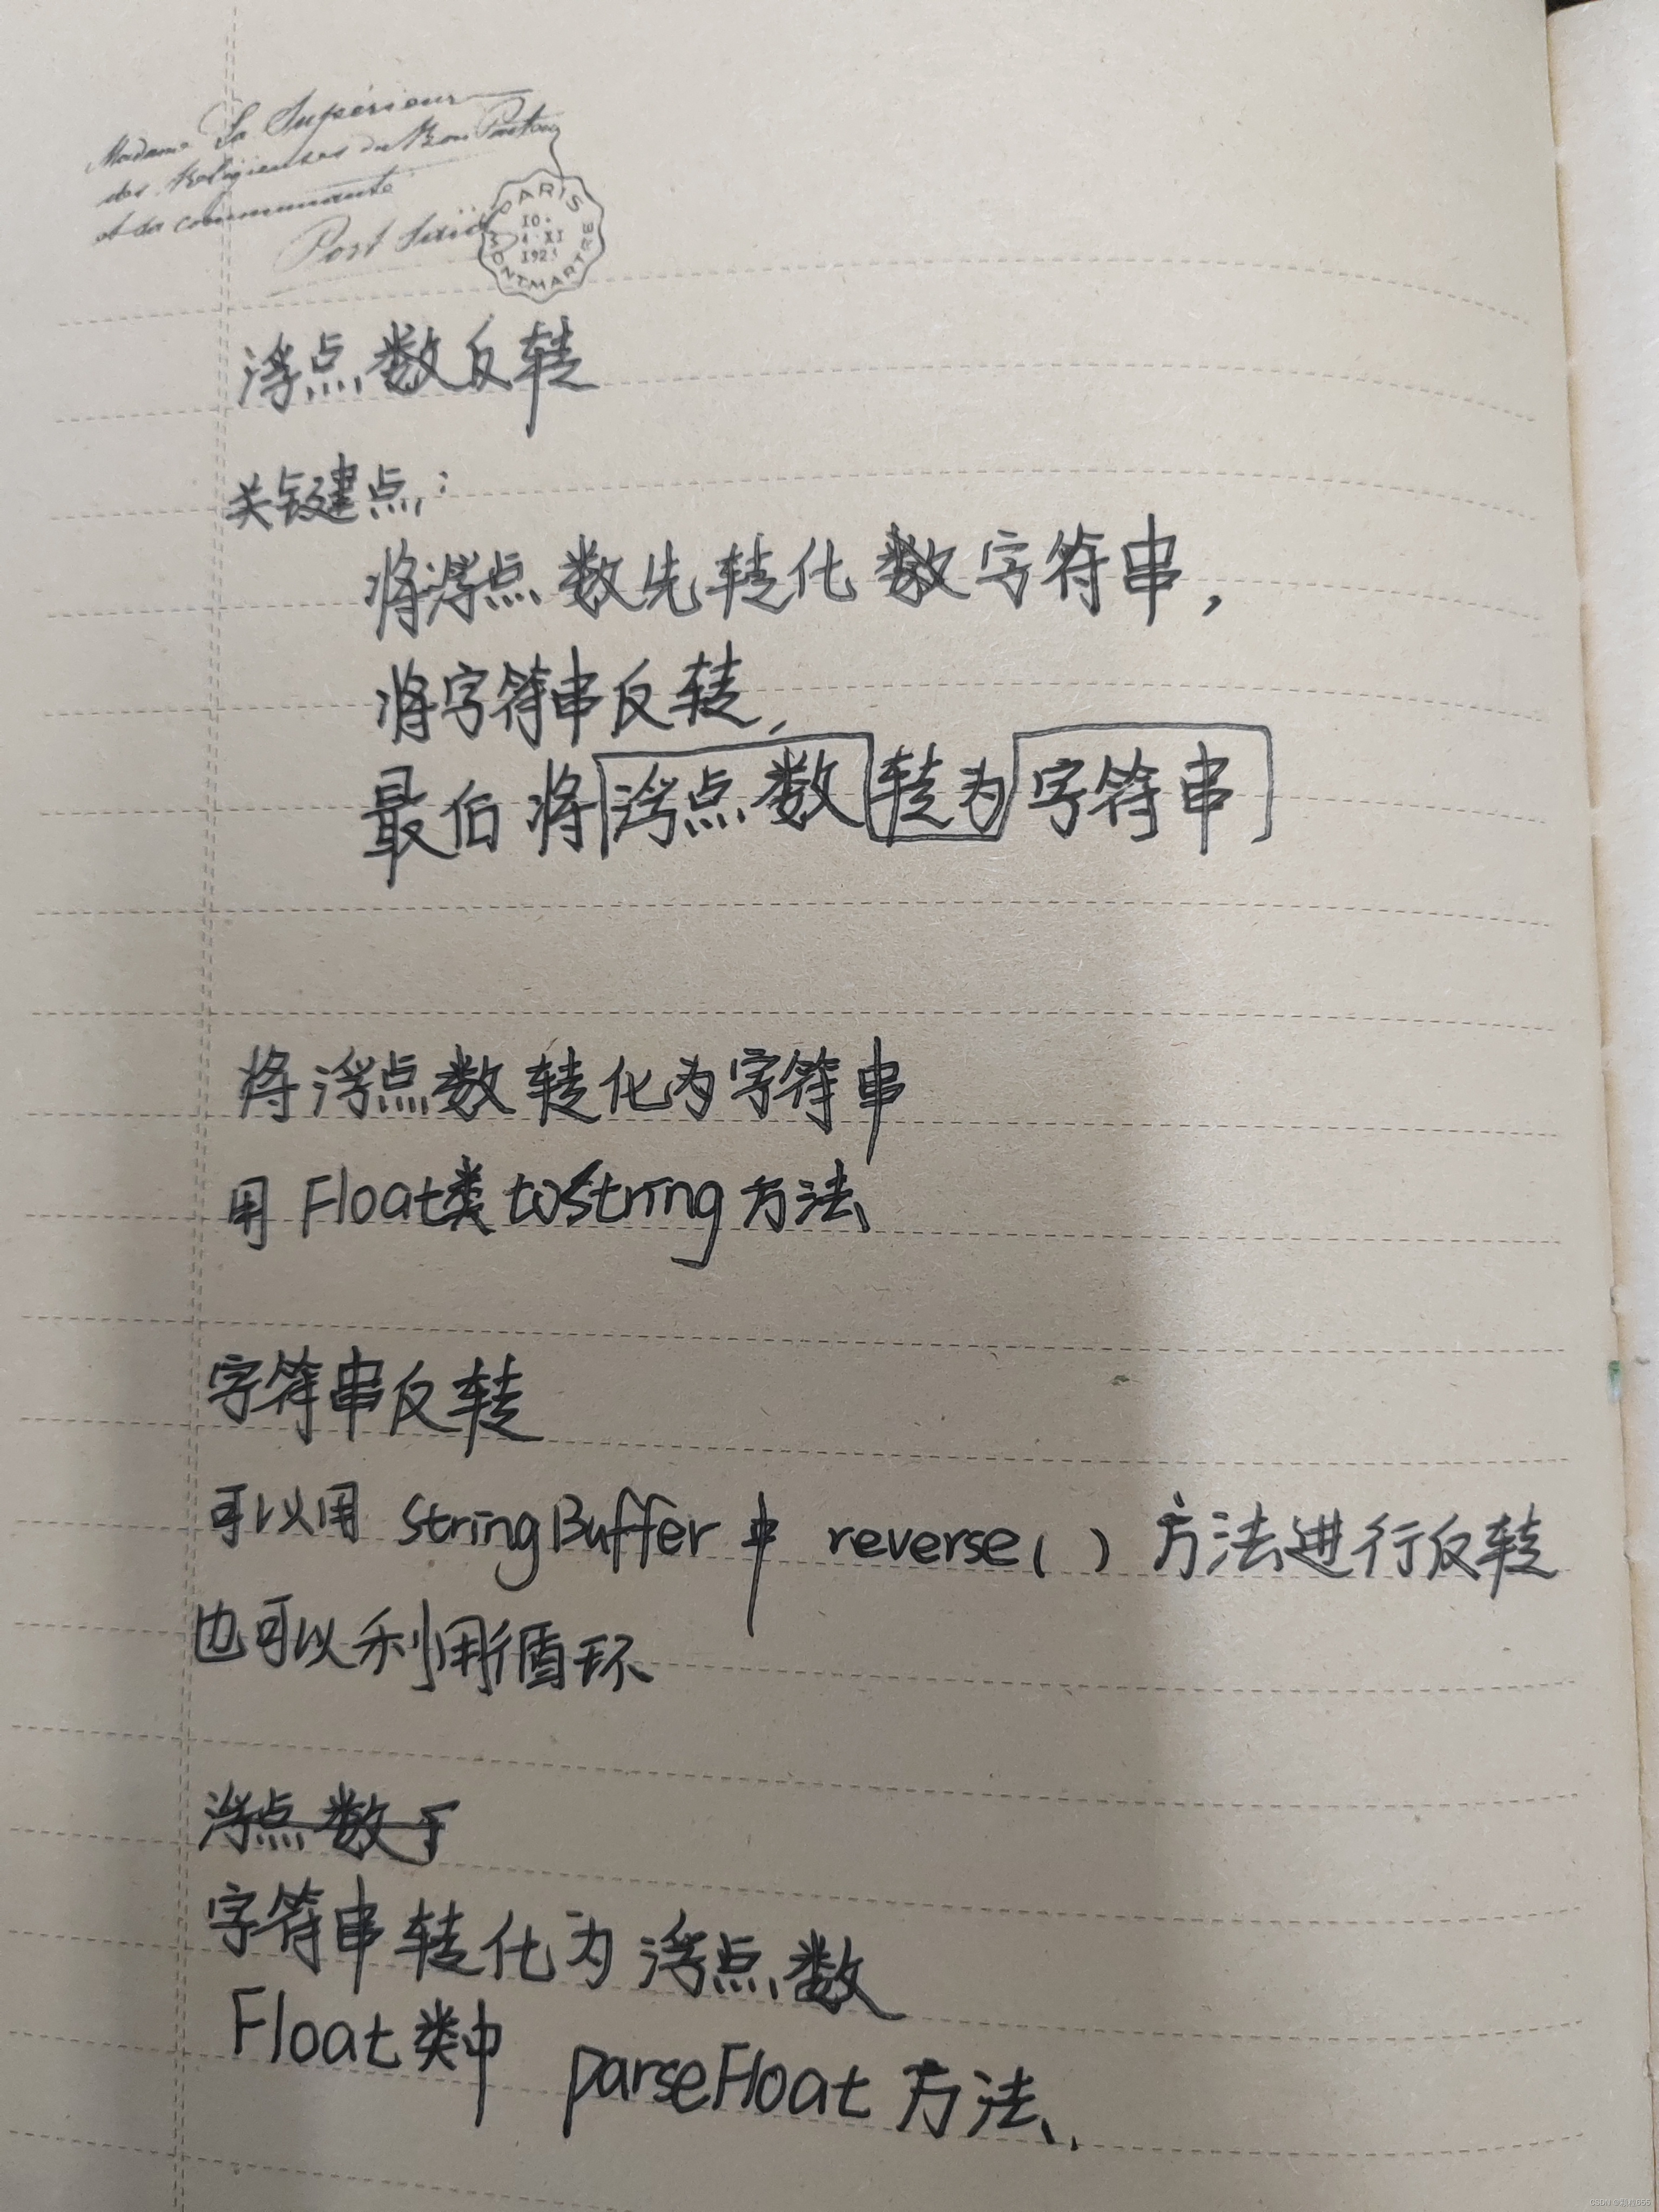 Madame La Supérieur
des Religieuses du Bon Pasteur
et sa communauté
Port Saïd
PARIS
10
4 XI
192
MONTMARTRE
浮点数反转
关键点:
将浮点数先转化数字符串,
将字符串反转,
最后将浮点数转为字符串
将浮点数转化为字符串
用Float类toString方法
字符串反转
可以用 StringBuffer 中 reverse( ) 方法进行反转
也可以利用循环
浮点数字
字符串转化为浮点数
Float类中 parseFloat 方法.